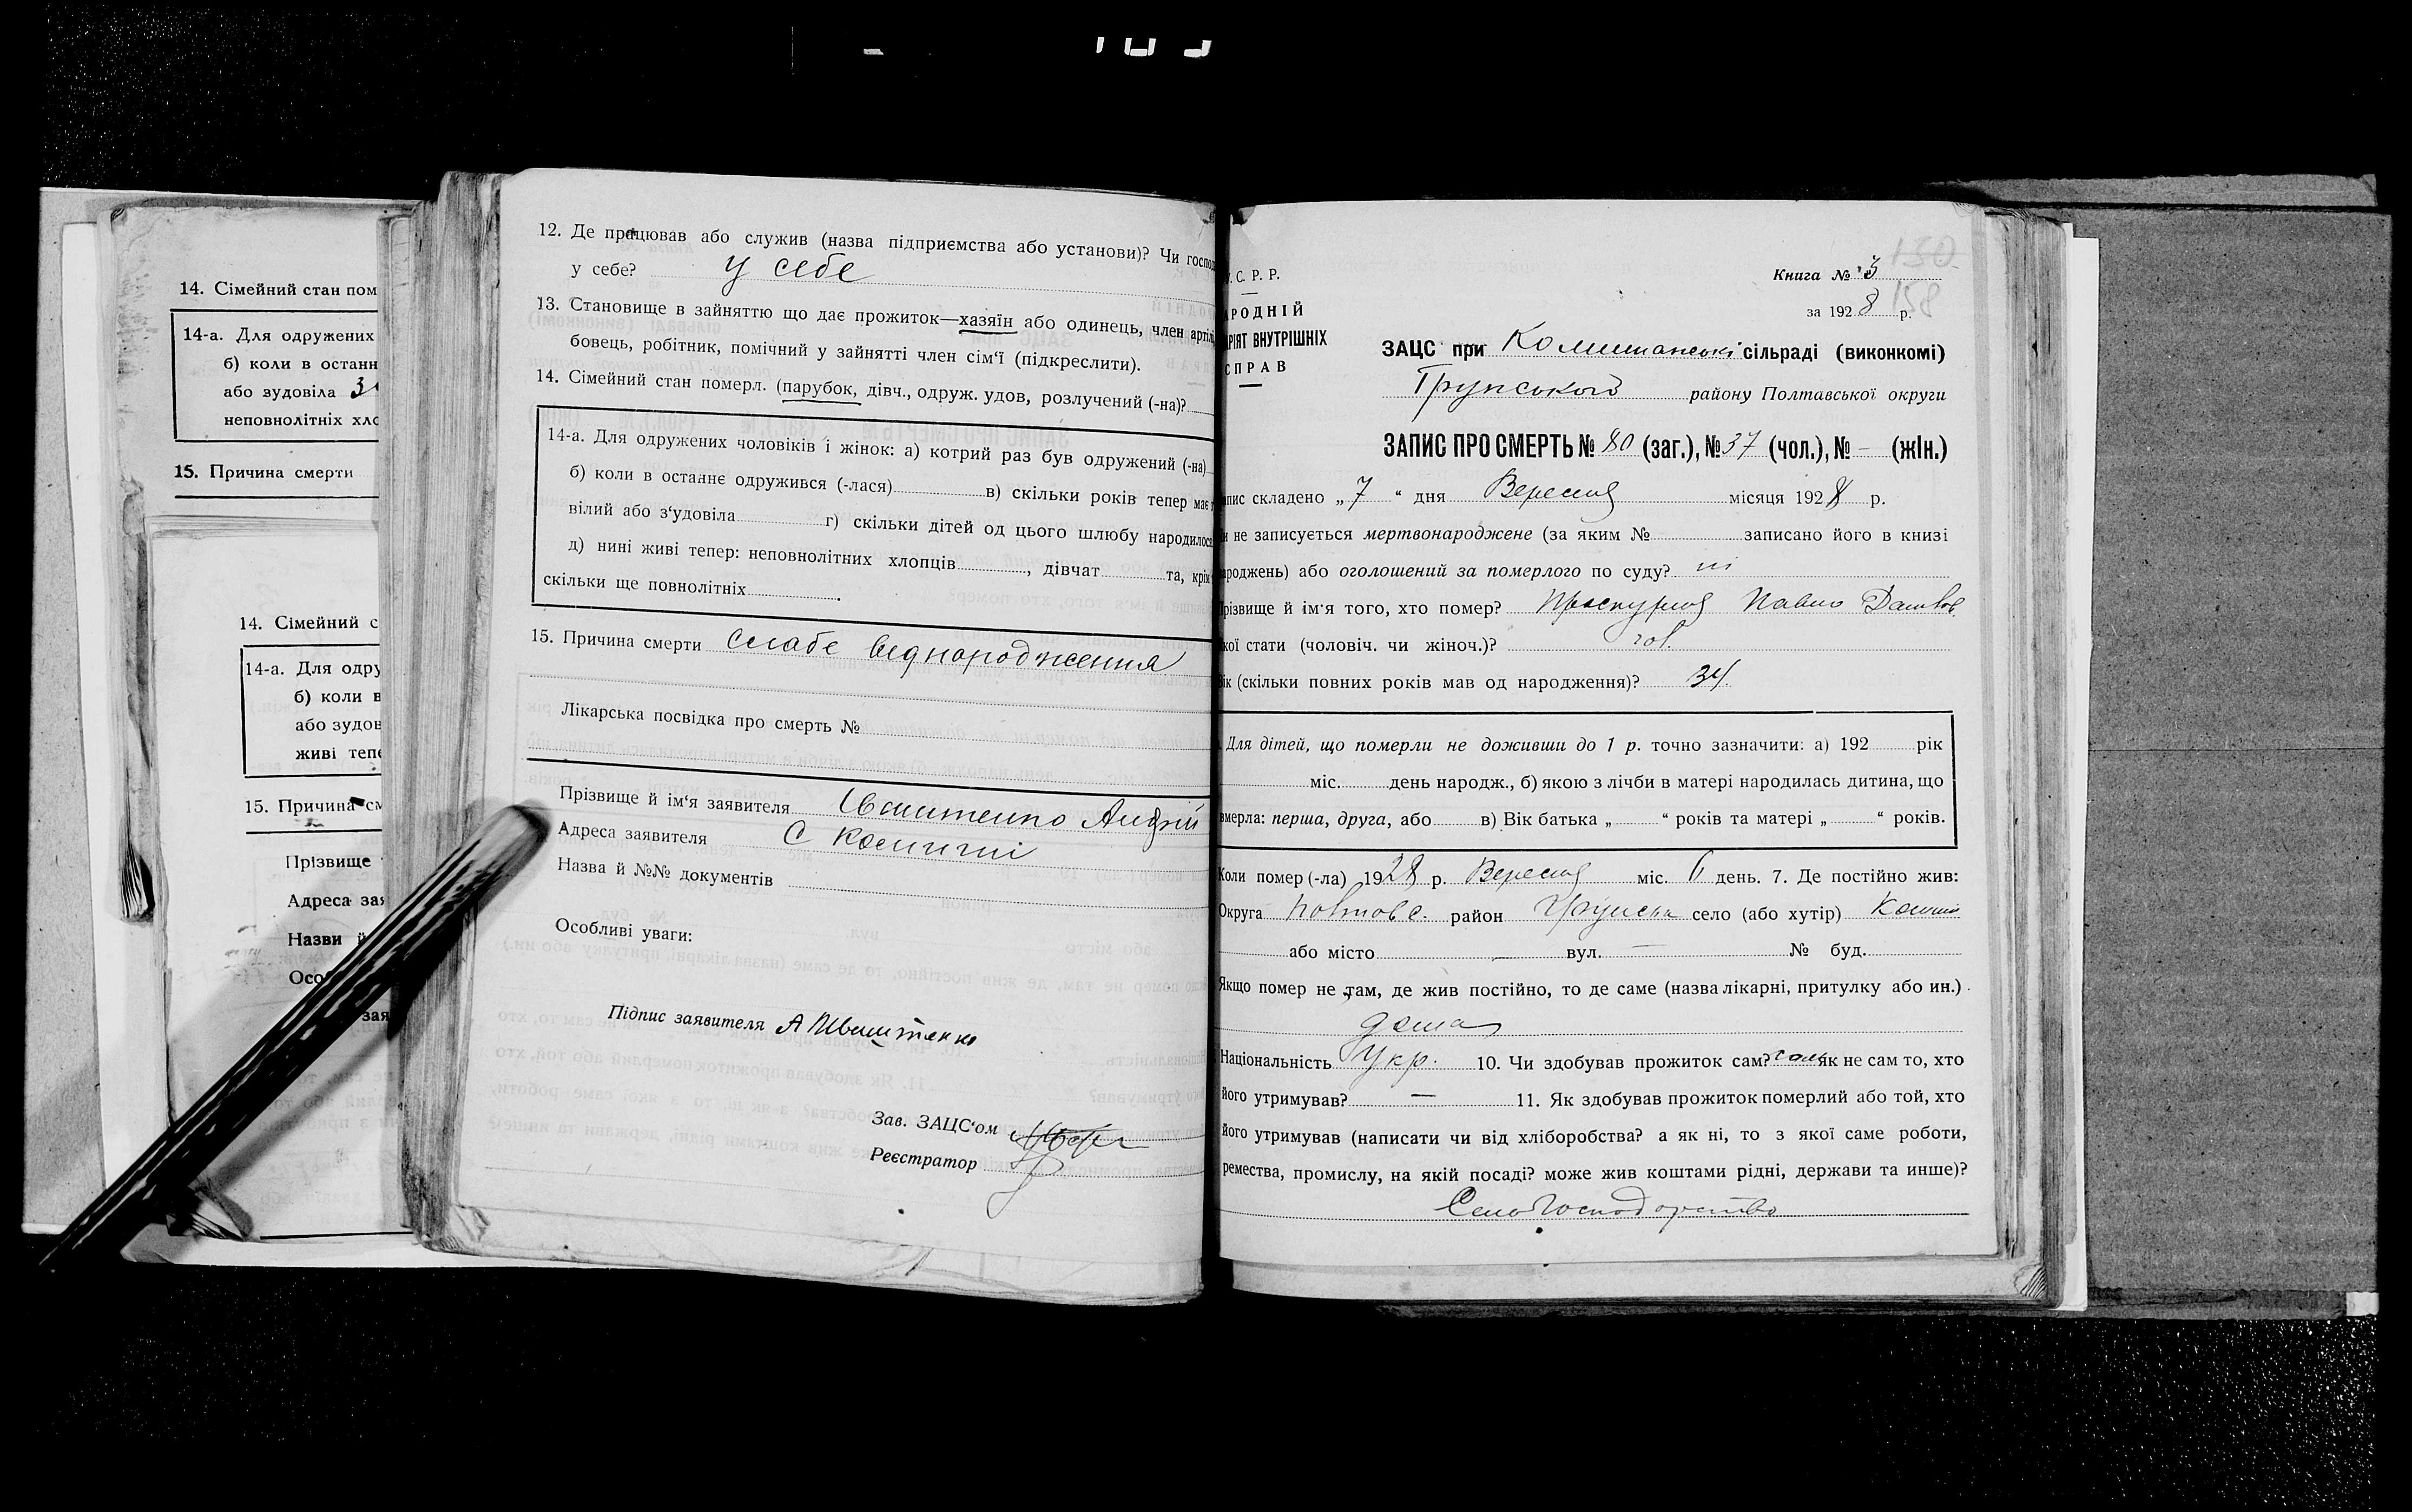 14. Сімейний стан пом
14-а. Для одружених
б) коли в останн
або зудовіла
неповнолітніх хло
15. Причина смерти
14. Сімейний с
14-а. Для одру
б) коли в
або зудов
живі тепе
15. Причина см
Прізвище
Адреса зая
Назви й
Осо
зая
12. Де працював або служив (назва підприємства або установи)? Чи господ
у себе? у себе
13. Становище в зайняттю що дає прожиток—хазяїн або одинець, член артілі
бовець, робітник, помічний у зайнятті член сім'ї (підкреслити).
14. Сімейний стан померл. (парубок, дівч., одруж. удов, розлучений (-на)?
14-а. Для одружених чоловіків і жінок: а) котрий раз був одружений (-на)
б) коли в останнє одружився (-лася) в) скільки років тепер має
вілий або з'удовіла г) скільки дітей од цього шлюбу народилося
д) нині живі тепер: неповнолітних хлопців, дівчат та, крім
скільки ще повнолітніх.
15. Причина смерти слабе віднародження
Лікарська посвідка про смерть №
Прізвище й ім'я заявителя Іваштенко Андрій
Адреса заявителя С Комиші
Назва й №№ документів
Особливі уваги:
Підпис заявителя А Ивштенко
Зав. ЗАЦС'ом
Реєстратор
С. Р. Р.
АРОДНІЙ
АРІЯТ ВНУТРІШНІХ
СПРАВ
130
Книга № 3
158
за 1928 р.
ЗАЦС при Комишанські сільраді (виконкомі)
Грунського району Полтавської округи
ЗАПИС ПРО СМЕРТЬ № 80 (заг.), № 37 (чол.), № - (жін.)
апис складено „7“ дня Вересня місяця 1928 р.
и не записується мертвонароджене (за яким № записано його в книзі
ароджень) або оголошений за померлого по суду? ні
різвище й ім'я того, хто помер? Проскурня Павло
кої стати (чоловіч. чи жіноч.)? чол.
ік (скільки повних років мав од народження)? 34.
Для дітей, що померли не доживши до 1 р. точно зазначити: а) 192 рік
міс. день народж., б) якою з лічби в матері народилась дитина, що
вмерла: перша, друга, або в) Вік батька „ “ років та матері „ “ років.
Коли помер (-ла) 1928 р. Вересня міс. 6 день. 7. Де постійно жив:
Округа Полтавс. район Грунськ село (або хутір) Комиші
або місто вул. — № буд.
Якщо помер не там, де жив постійно, то де саме (назва лікарні, притулку або ин.)
дома
Національність Укр. 10. Чи здобував прожиток сам? сам як не сам то, хто
його утримував? — 11. Як здобував прожиток померлий або той, хто
його утримував (написати чи від хліборобства? а як ні, то з якої саме роботи,
ремества, промислу, на якій посаді? може жив коштами рідні, держави та инше)?
Селогосподарство